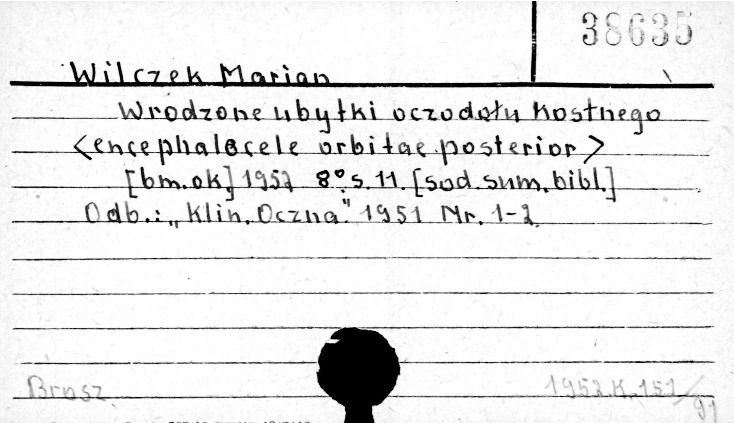 38635
Wilczek Marian
Wrodzone ubytki oczodołu kostnego
<encephalocele orbitae posterior>
[bm. ok.] 1952 8° s. 11. [sod. sum. bibl.]
Odb.: „Klin. Oczna." 1951 Nr. 1-2.
Brosz.
1952.K.151/91